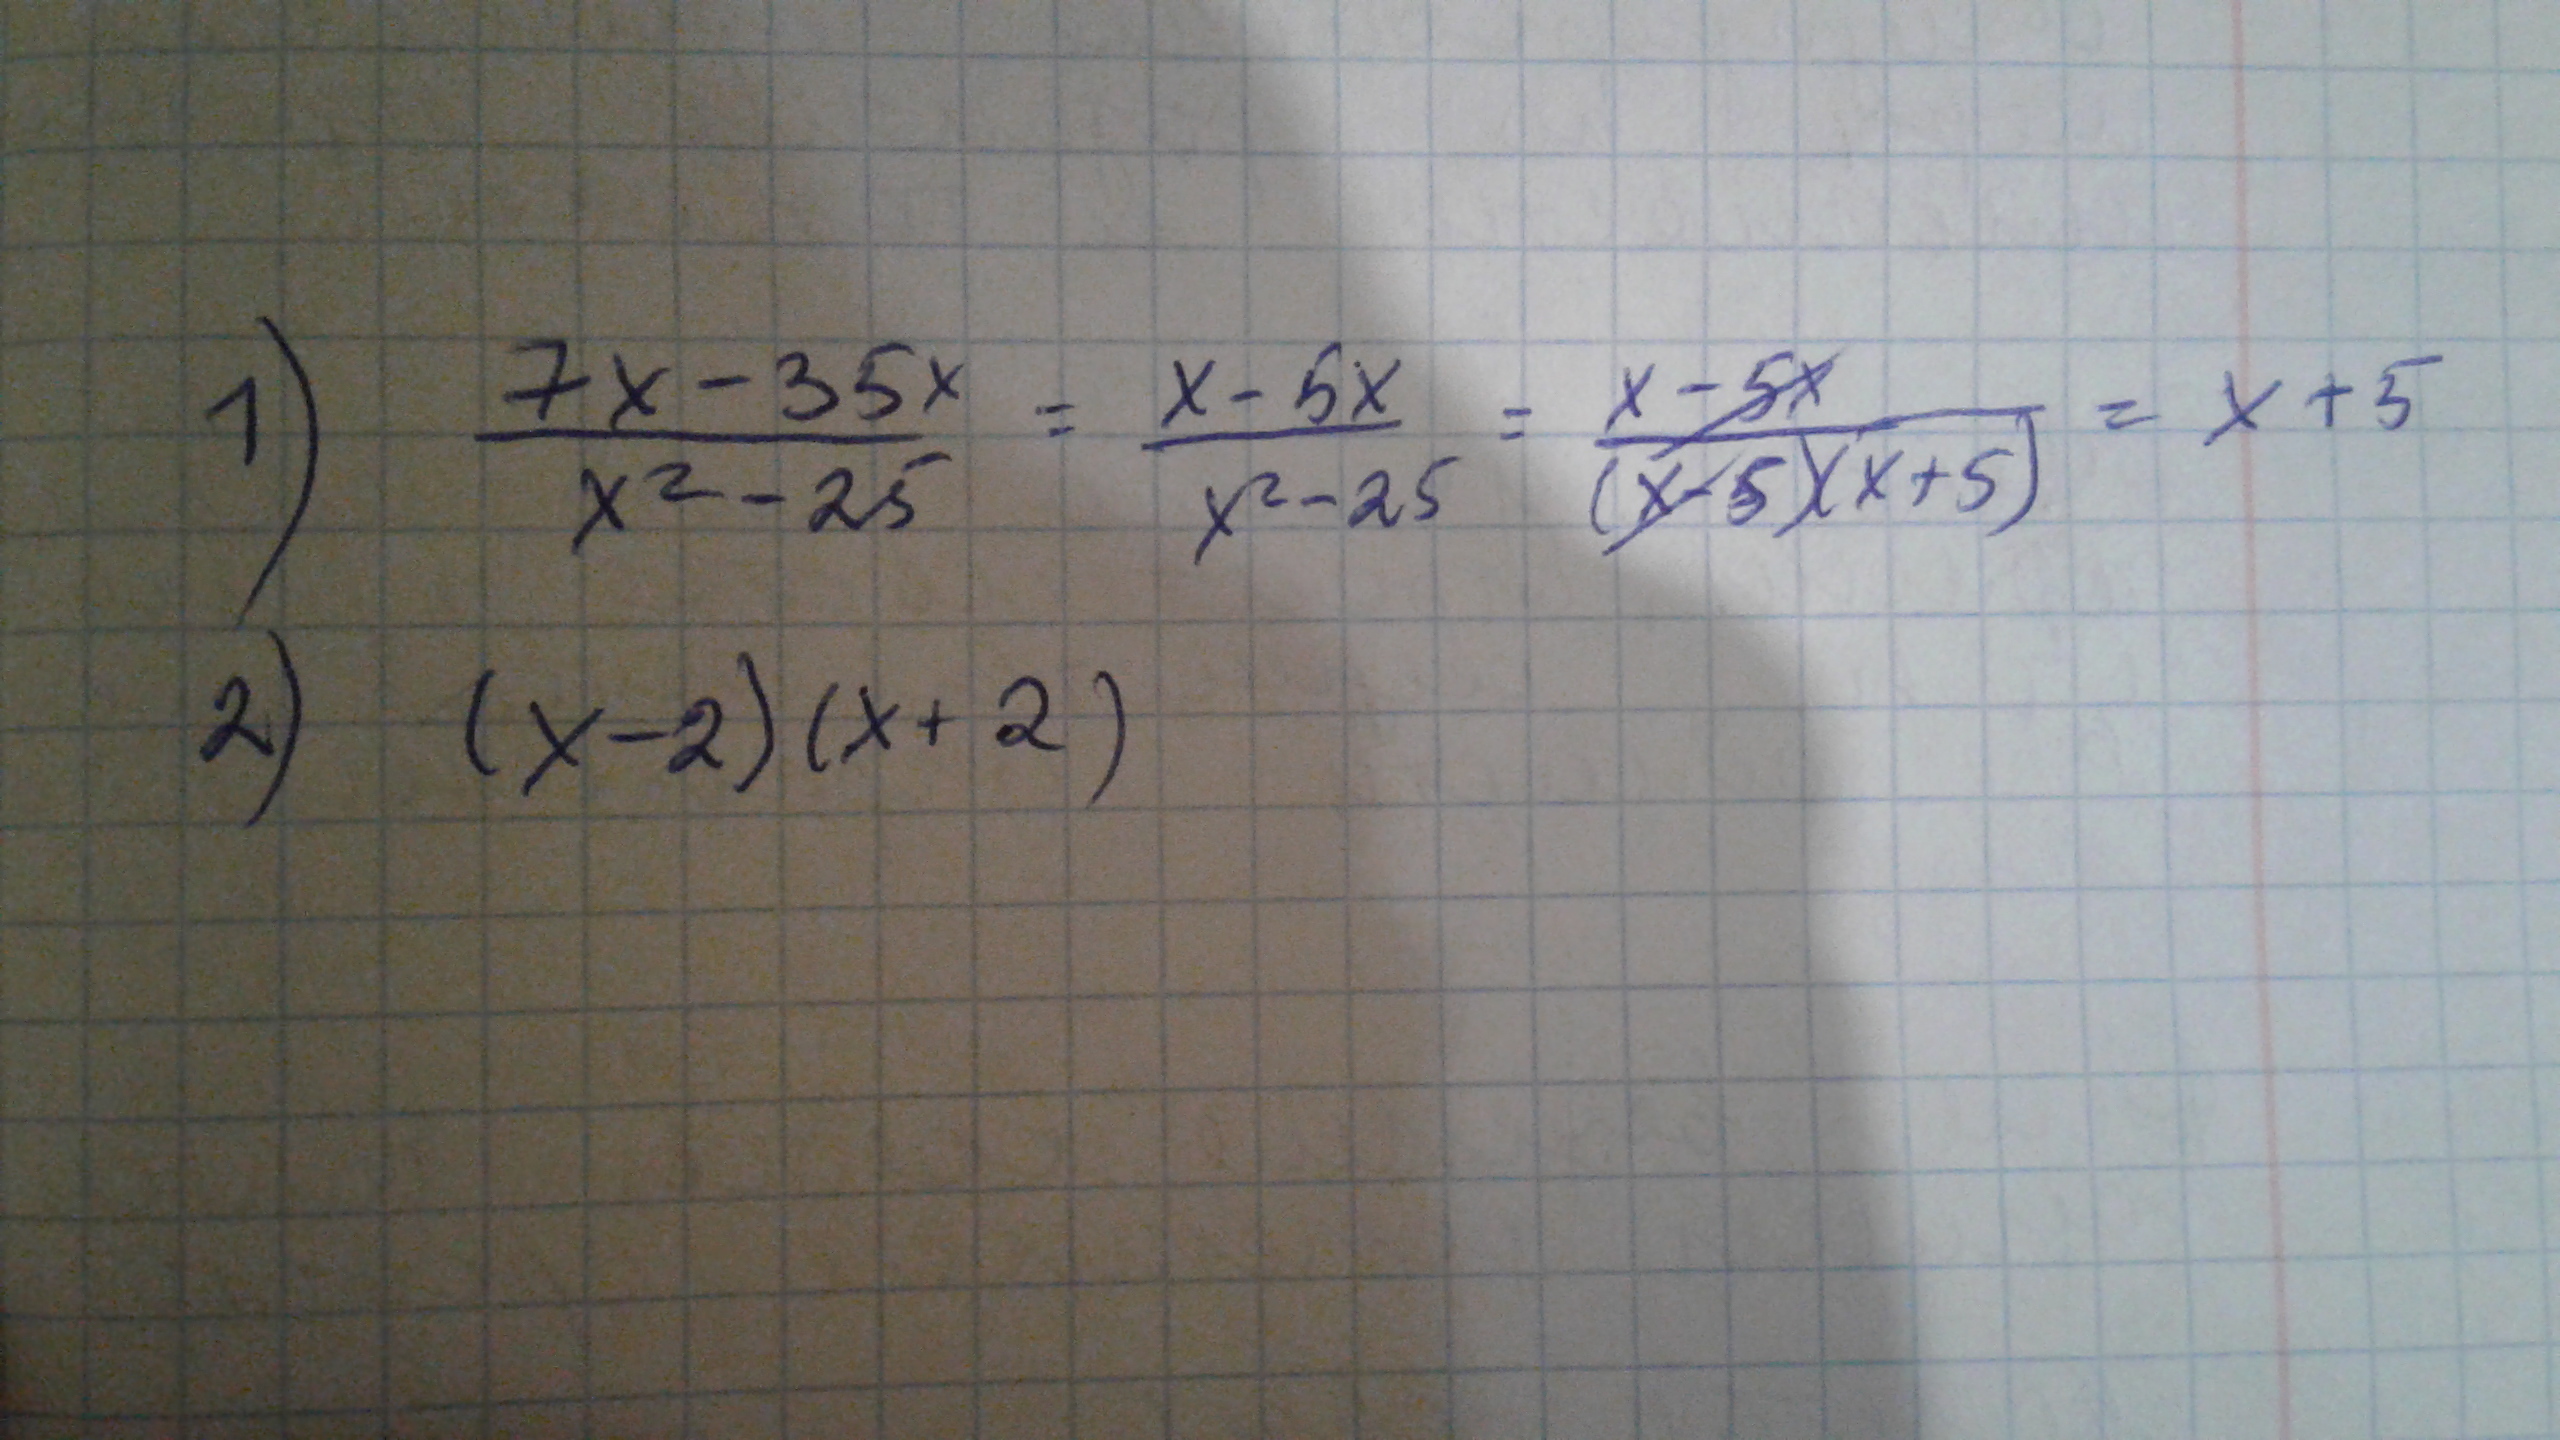 1) (7x-35x)/(x²-25) = (x-5x)/(x²-25) = (x-5x)/((x-5)(x+5)) = x+5
2) (x-2)(x+2)